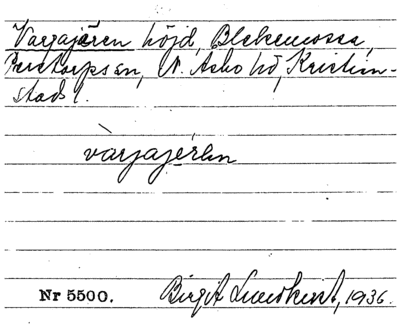 Vargajären höjd, Blekemossa,
Perstorps sn, N. Åsbo hd, Kristian-
stads l.
vàrjajérən
Nr 5500. Birgit Lundkvist, 1936.